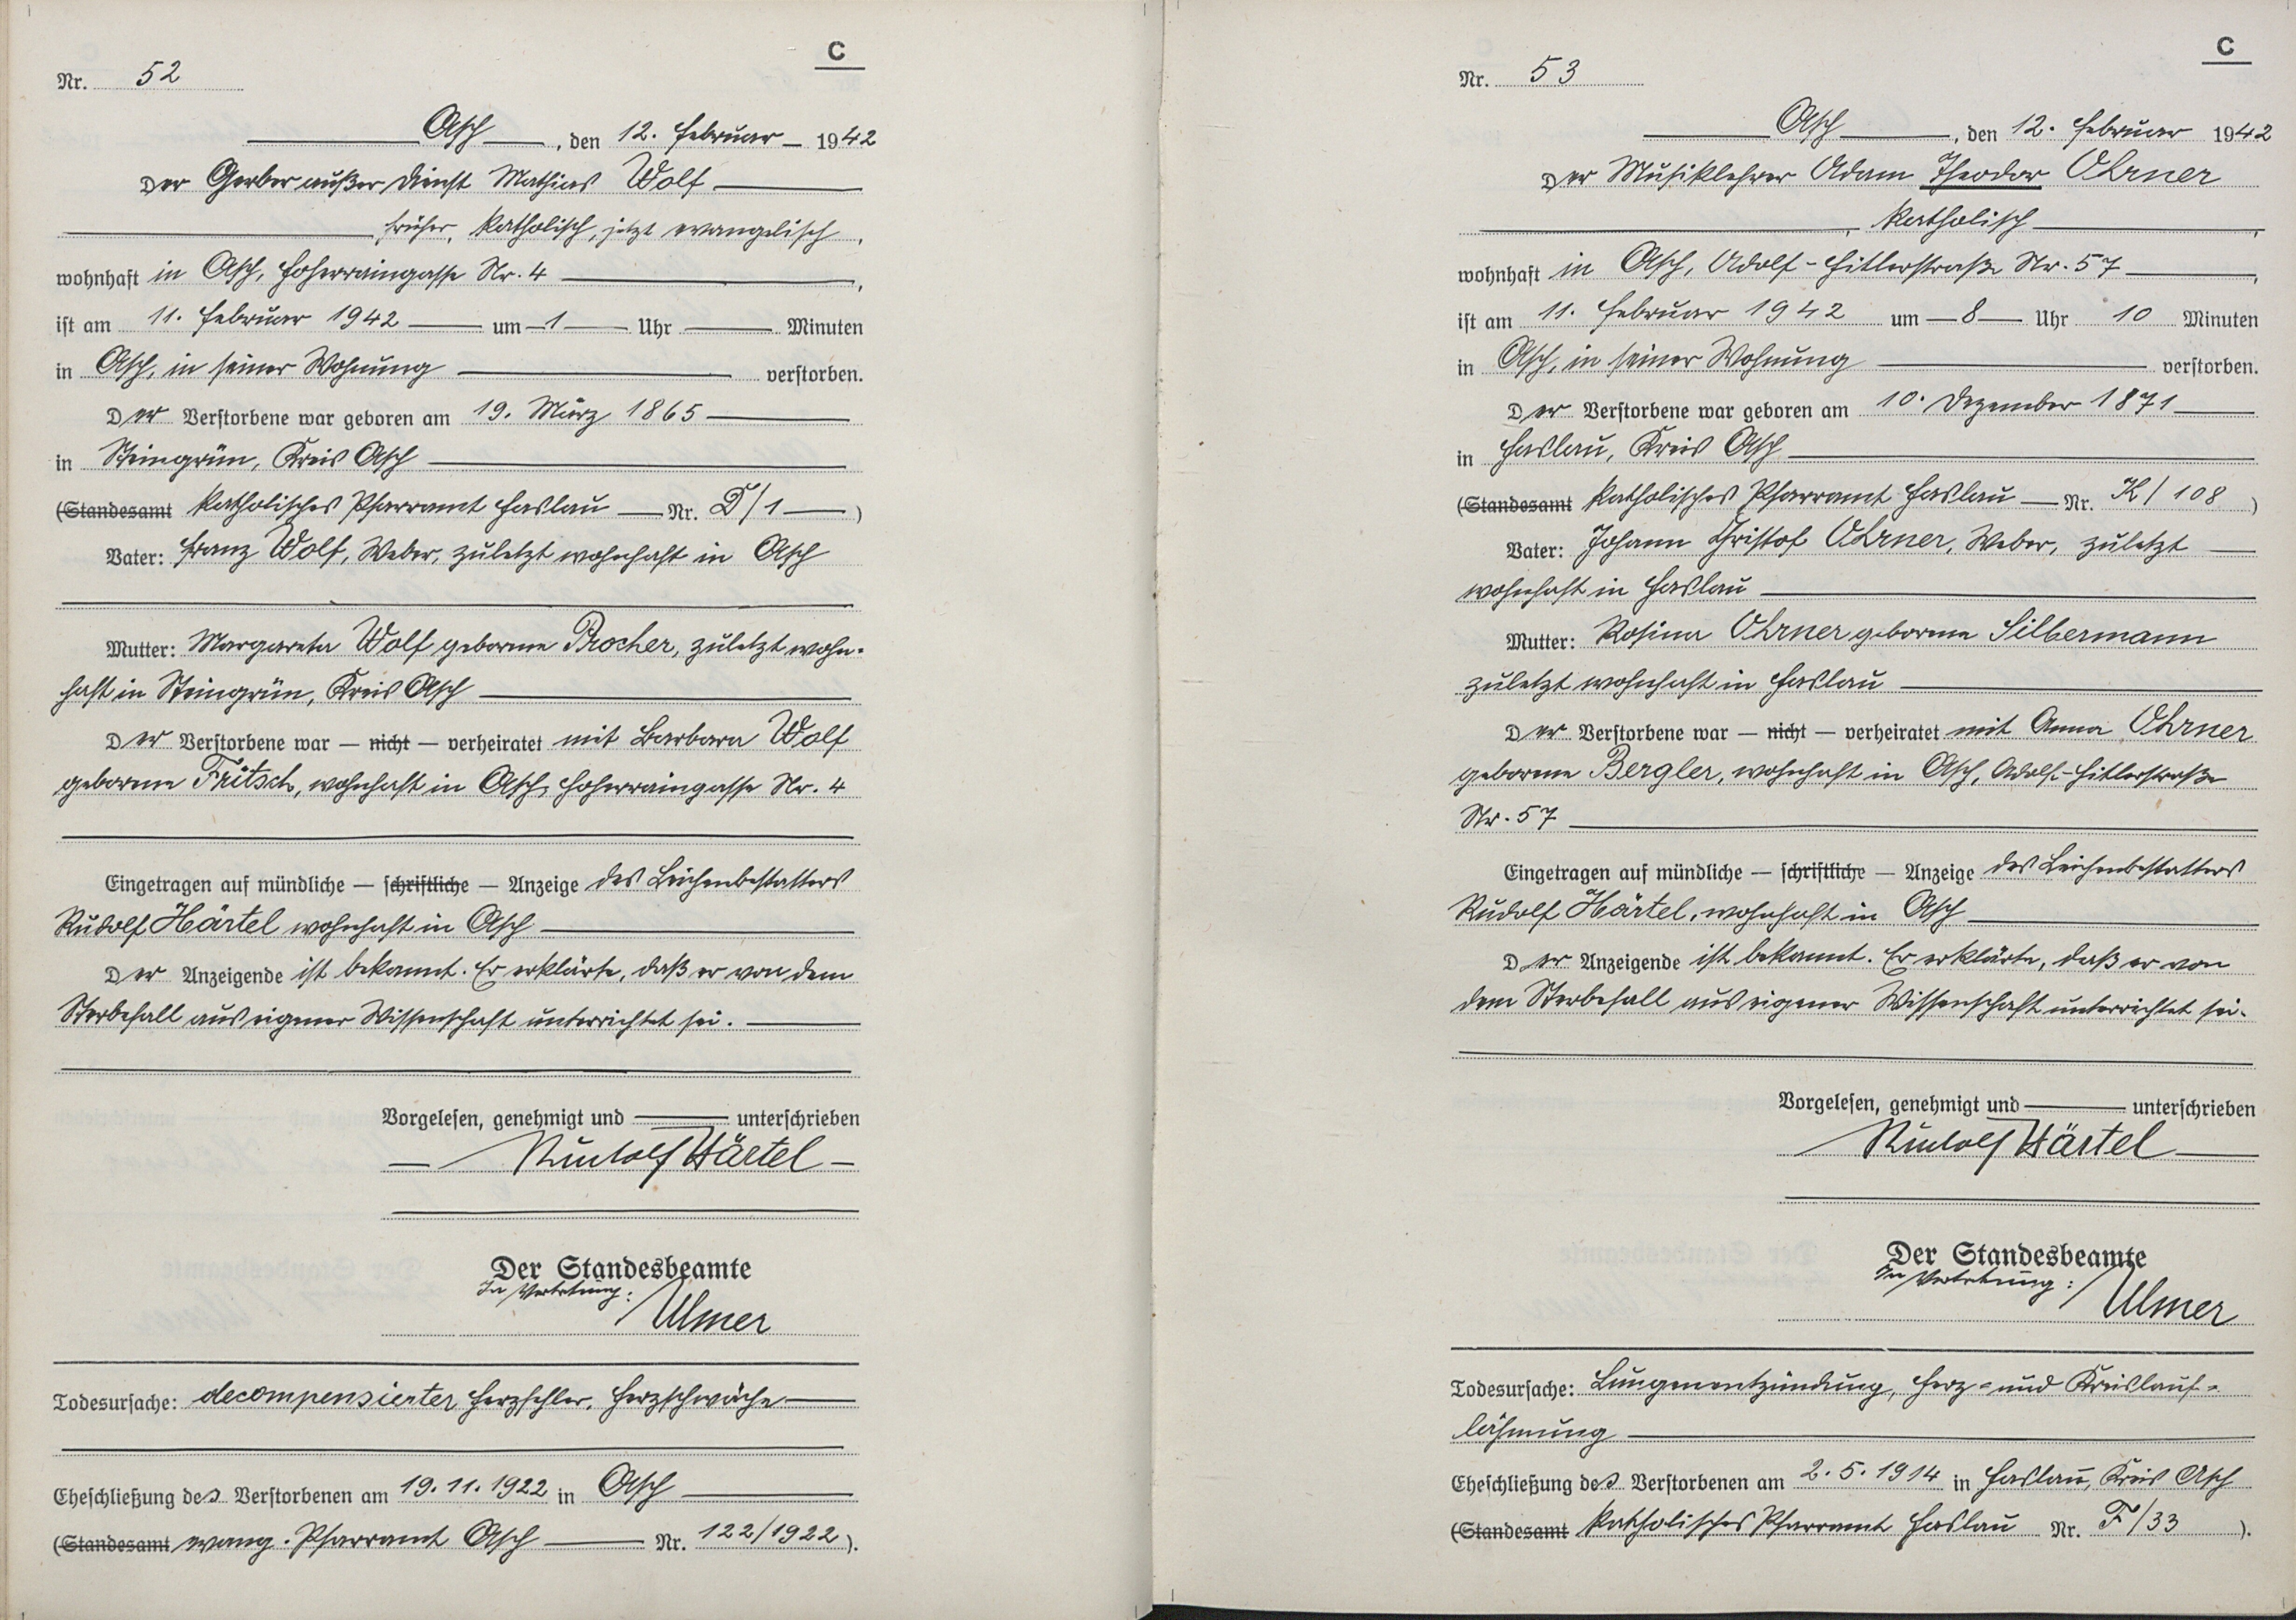 C
Nr. 52
Asch, den 12. Februar 1942
Der Gerber außer Dienst Mathias Wolf
früher katholisch, jetzt evangelisch,
wohnhaft in Asch, Hoherraingasse Nr. 4,
ist am 11. Februar 1942 um 1 Uhr Minuten
in Asch, in seiner Wohnung verstorben.
Der Verstorbene war geboren am 19. März 1865
in Steingrün, Kreis Asch
(Standesamt katholisches Pfarramt Haslau Nr. D/1)
Vater: Franz Wolf, Weber, zuletzt wohnhaft in Asch
Mutter: Margareta Wolf geborene Procher, zuletzt wohn-
haft in Steingrün, Kreis Asch
Der Verstorbene war — nicht — verheiratet mit Barbara Wolf
geborene Fritsch, wohnhaft in Asch, Hoherraingasse Nr. 4
Eingetragen auf mündliche — schriftliche — Anzeige des Leichenbestatters
Rudolf Härtel wohnhaft in Asch
Der Anzeigende ist bekannt. Er erklärte, daß er von dem
Sterbefall aus eigener Wissenschaft unterrichtet sei.
Vorgelesen, genehmigt und unterschrieben
Rudolf Härtel
Der Standesbeamte
In Vertretung: Ulmer
Todesursache: decompensierter Herzfehler, Herzschwäche
Eheschließung des Verstorbenen am 19.11.1922 in Asch
(Standesamt evang. Pfarramt Asch Nr. 122/1922).
C
Nr. 53
Asch, den 12. Februar 1942
Der Musiklehrer Adam Theodor Ohrner
, katholisch,
wohnhaft in Asch, Adolf-Hitlerstraße Nr. 57,
ist am 11. Februar 1942 um 8 Uhr 10 Minuten
in Asch, in seiner Wohnung verstorben.
Der Verstorbene war geboren am 10. Dezember 1871
in Haslau, Kreis Asch
(Standesamt katholisches Pfarramt Haslau Nr. K/108)
Vater: Johann Christof Ohrner, Weber, zuletzt
wohnhaft in Haslau
Mutter: Rosina Ohrner geborene Silbermann
zuletzt wohnhaft in Haslau
Der Verstorbene war — nicht — verheiratet mit Anna Ohrner
geborene Bergler, wohnhaft in Asch, Adolf-Hitlerstraße
Nr. 57
Eingetragen auf mündliche — schriftliche — Anzeige des Leichenbestatters
Rudolf Härtel, wohnhaft in Asch
Der Anzeigende ist bekannt. Er erklärte, daß er von
dem Sterbefall aus eigener Wissenschaft unterrichtet sei.
Vorgelesen, genehmigt und unterschrieben
Rudolf Härtel
Der Standesbeamte
In Vertretung: Ulmer
Todesursache: Lungenentzündung, Herz- und Kreislauf-
lähmung
Eheschließung des Verstorbenen am 2.5.1914 in Haslau, Kreis Asch
(Standesamt katholisches Pfarramt Haslau Nr. F/33).